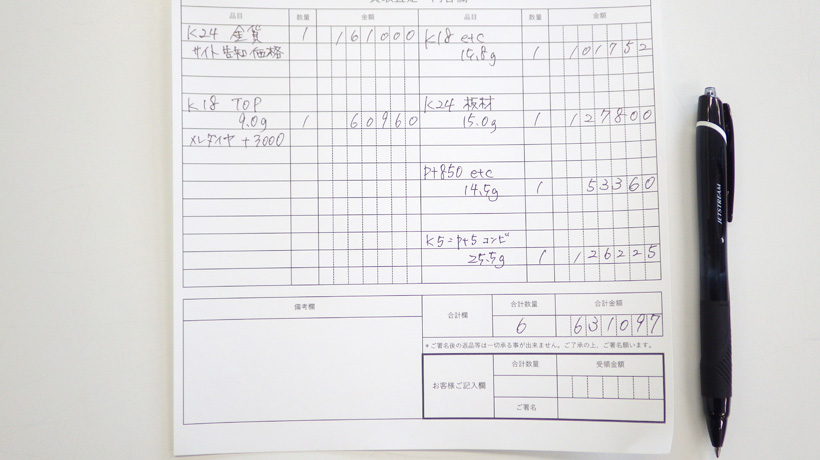 品目 数量 金額 品目 数量 金額
K24 金貨 1 161000
サイト告知価格
K18 TOP
9.0g 1 60960
メレダイヤ +3000
K18 etc
15.8g 1 101752
K24 板材
15.0g 1 127800
Pt850 etc
14.5g 1 53360
K5=Pt5 コンビ
25.5g 1 126225
備考欄
合計欄
合計数量 合計金額
6 631097
*ご署名後の返品等は一切承る事が出来ません。ご了承の上、ご署名願います。
お客様ご記入欄
合計数量 受領金額
ご署名
JETSTREAM